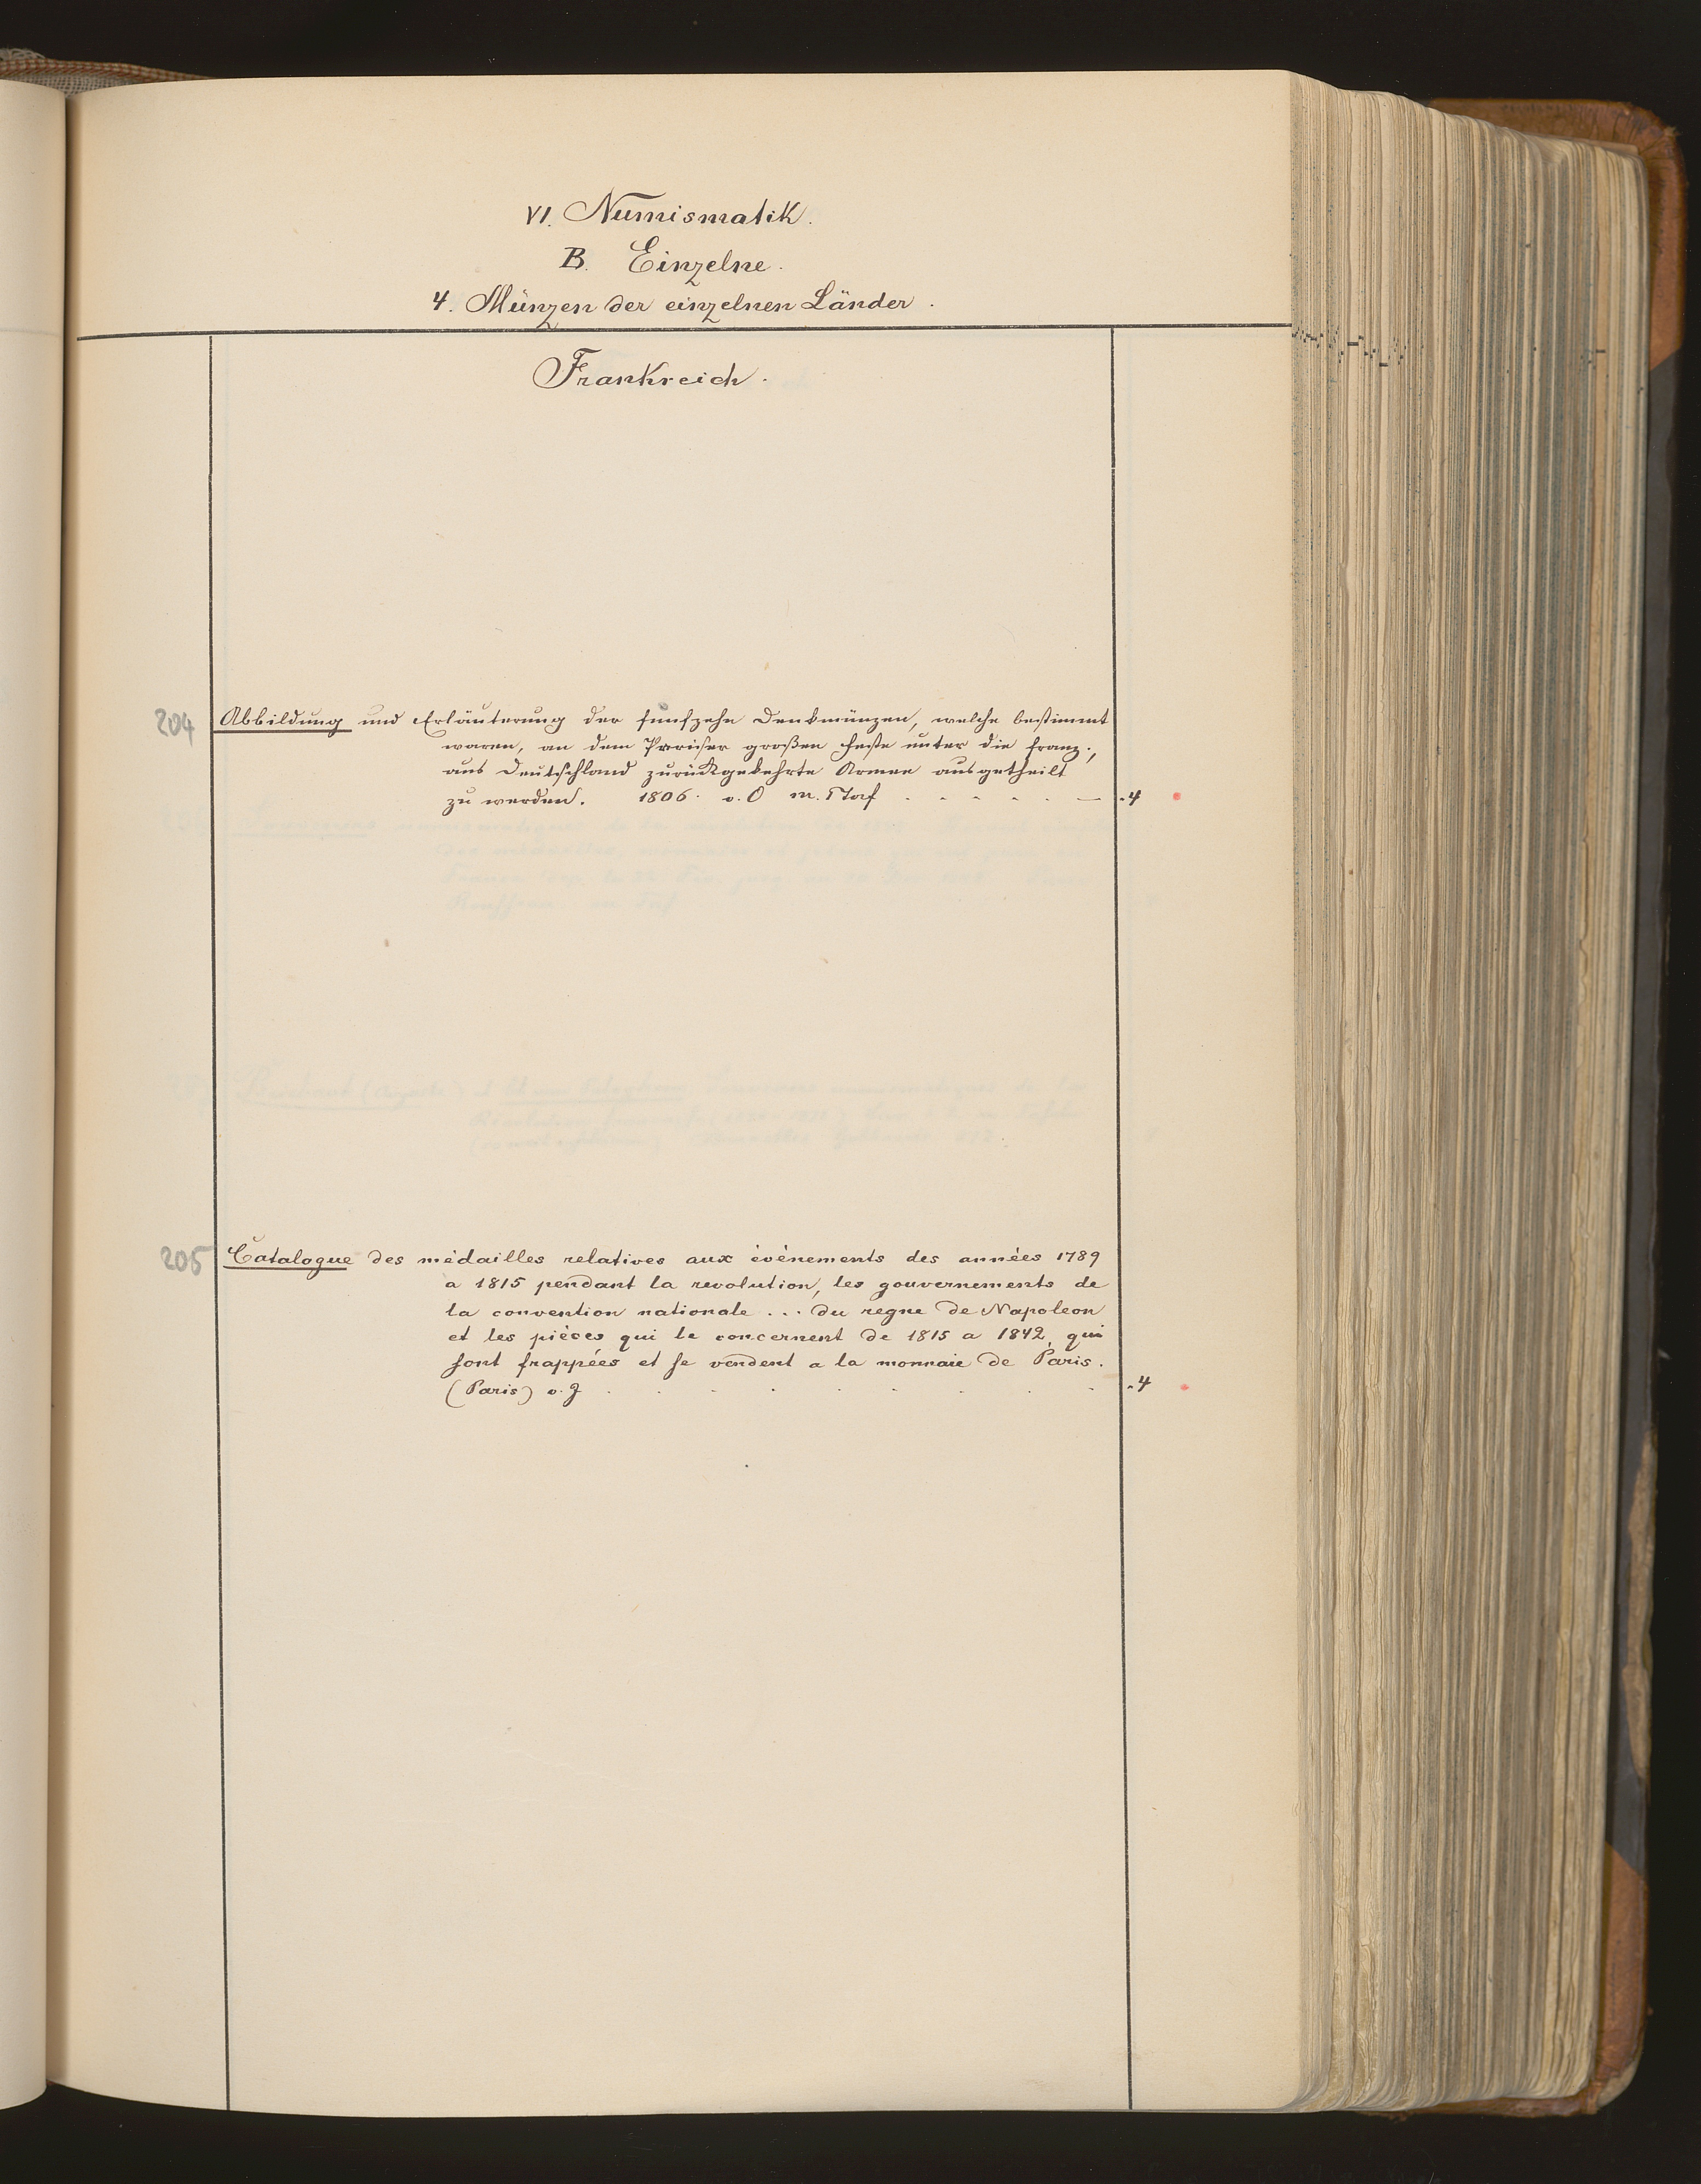 VI. Numismatik.
B. Einzelne.
4. Münzen der einzelnen Länder.
Frankreich.
204 Abbildung und Erläuterung der fünfzehn Denkmünzen, welche bestimmt
waren, an dem Pariser großen Feste unter die franz.,
aus Deutschland zurückgekehrte Armee ausgetheilt
zu werden. 1806. o. O m. Taf . . . . . . — . 4
205 Catalogue des médailles relatives aux évènements des années 1789
a 1815 pendant la revolution, les gouvernements de
la convention nationale ... du regne de Napoleon
et les pièces qui le concernent de 1815 a 1842, qui
sont frappées et se vendent a la monnaie de Paris.
(Paris) o. J. . . . . . . . . . 4